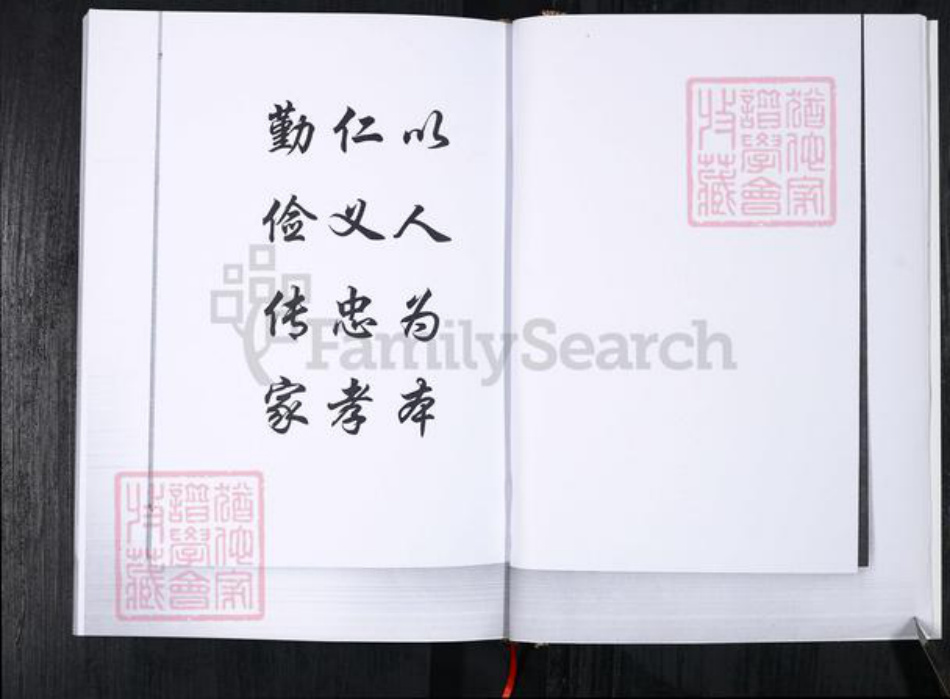 以人为本
仁义忠孝
勤俭传家
FamilySearch
猶他家
譜學會
收藏
猶他家
譜學會
收藏